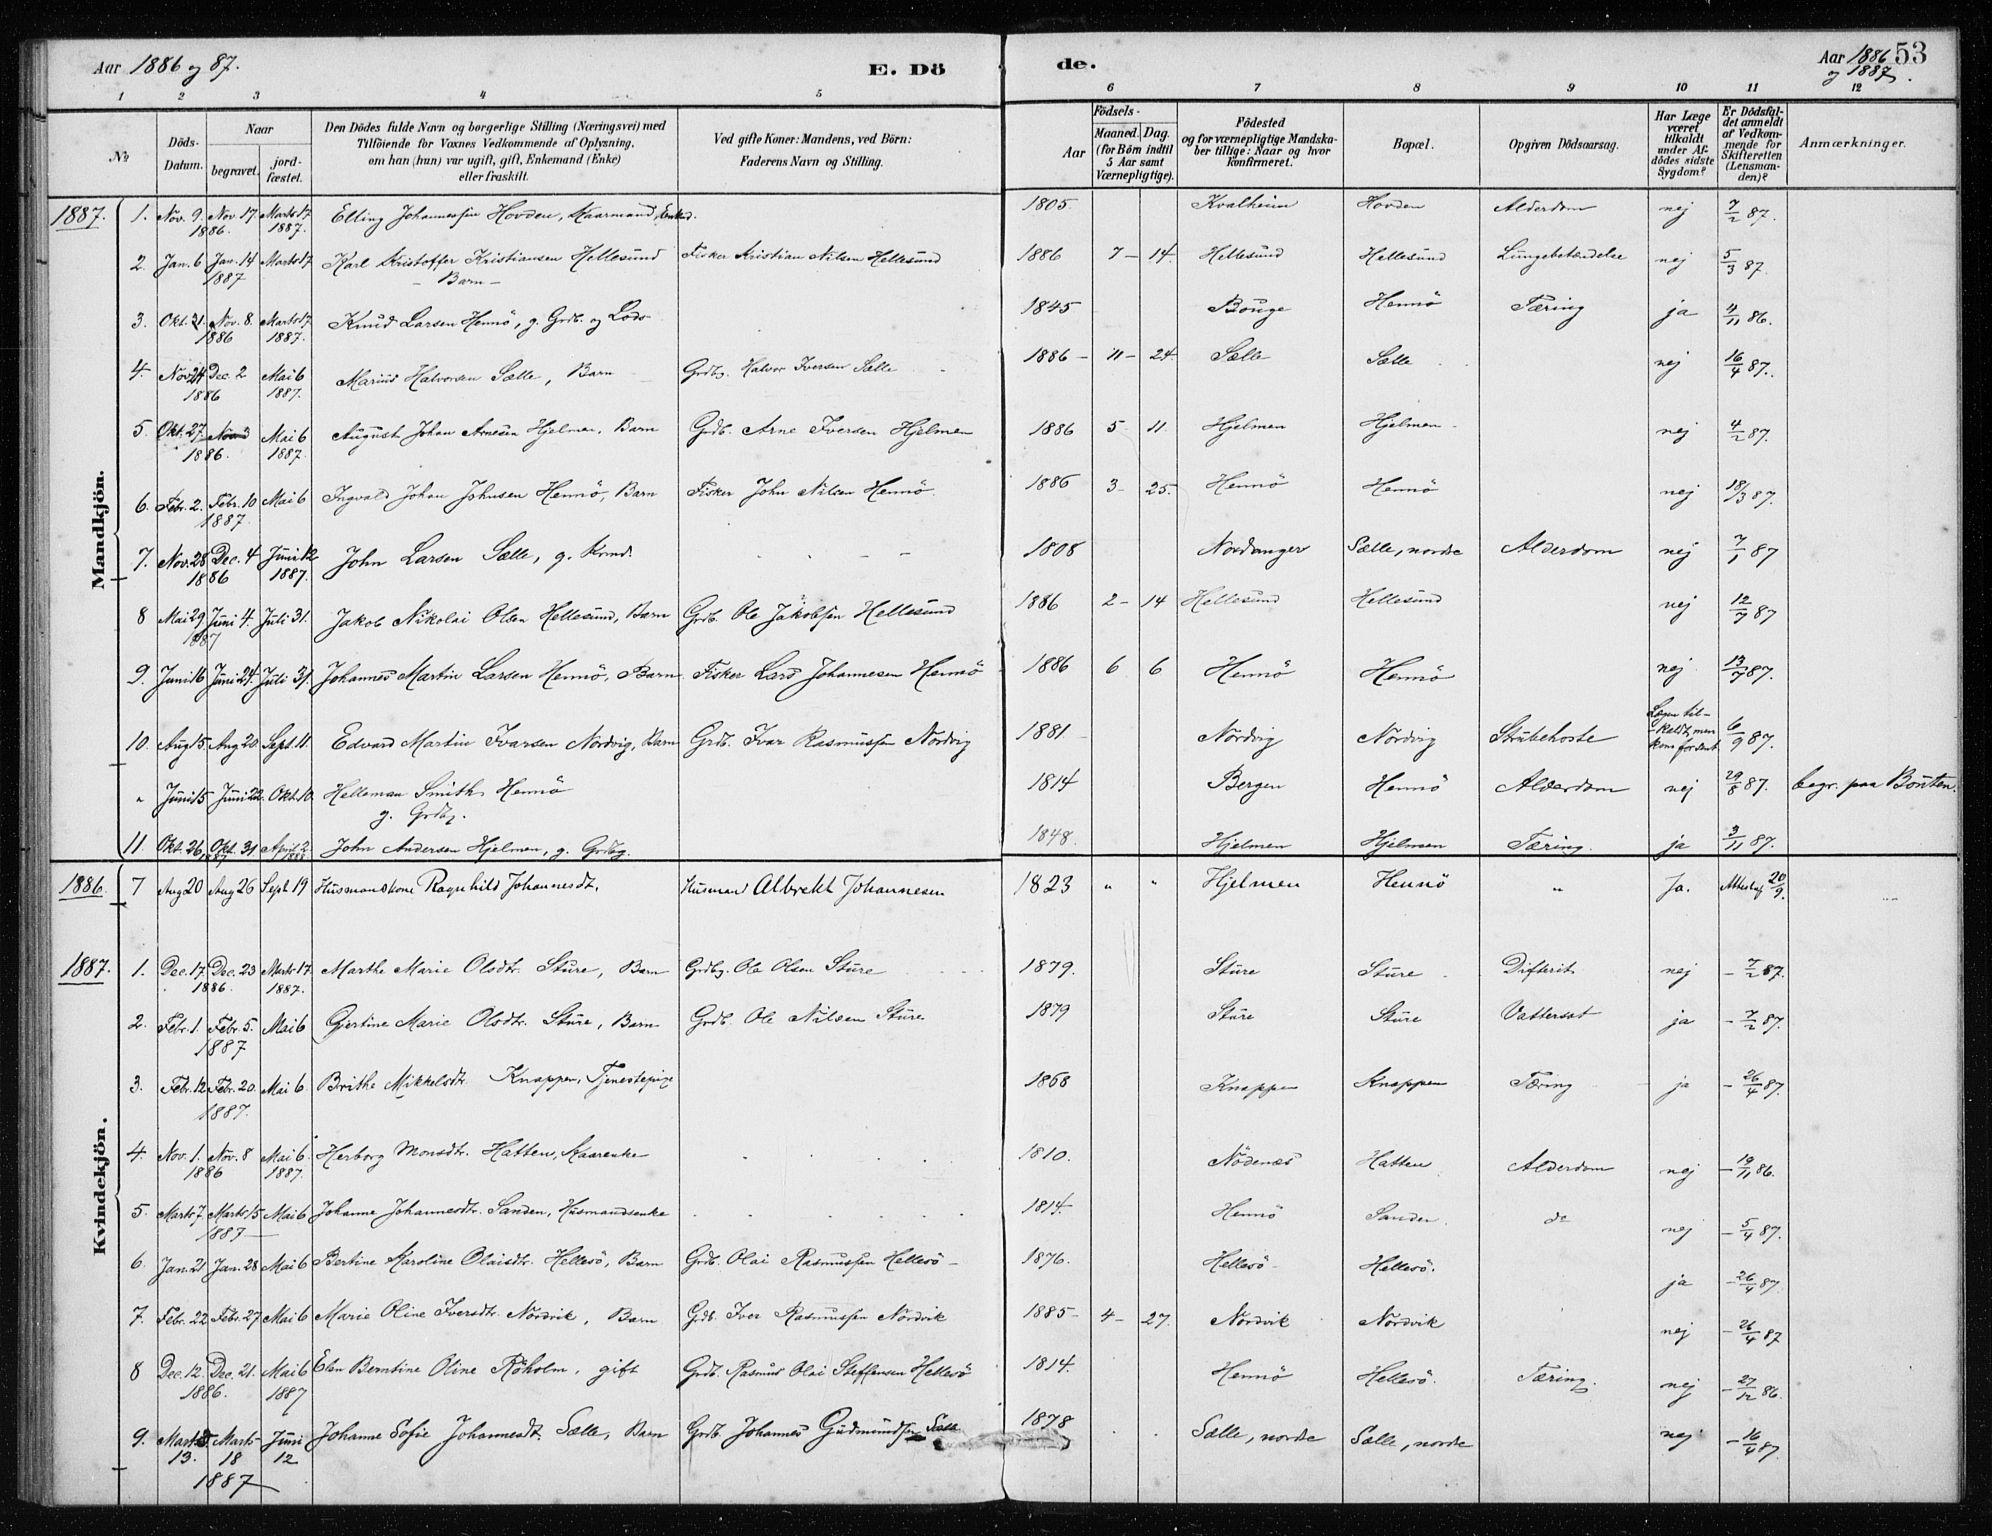 Aar 1886 og 87. E. Dö de. Aar 1886 og 1887. 53
1 2 3 4 5 6 7 8 9 10 11 12
No Döds-Datum. Naar begravet. jordfæstet. Den Dödes fulde Navn og borgerlige Stilling (Næringsvei) med Tilföiende for Voxnes Vedkommende af Oplysning, om han (hun) var ugift, gift, Enkemand (Enke) eller fraskilt. Ved gifte Koner: Mandens, ved Börn: Faderens Navn og Stilling. Födsels- Aar Maaned. Dag. (for Börn indtil 5 Aar samt Værnepligtige). Födested og for værnepligtige Mandskaber tillige: Naar og hvor konfirmeret. Bopæl. Opgiven Dödsaarsag. Har Læge været tilkaldt under Afdödes sidste Sygdom? Er Dödsfaldet anmeldt af Vedkommende for Skifteretten (Lensmanden)? Anmærkninger.
Mandkjön.
1887. 1. Nov. 9. Nov. 17 Marts 17 Elling Johannessen Hovden, Kaarmand, Enkem. 1805. Kvalheim Hovden Alderdom nej 7/2 87.
1886. 1887.
2. Jan. 6 Jan. 14 Marts 17 Karl Kristoffer Kristiansen Hellesund Fisker Kristian Nilsen Hellesund 1886 7 – 14. Hellesund Hellesund Lungebetændelse nej 5/3 87.
1887 – Barn –
3. Okt. 31. Nov. 8. Marts 17 Knud Larsen Hennö, g. Grdb. og Lods 1845 Bouge Hennö Tæring ja 4/11 86.
1886 1887.
4. Nov. 24 Dec. 2 Mai 6 Marius Halvorsen Sælle, Barn Grdbg. Halvor Iversen Sælle 1886 – 11 – 24. Sælle Sælle nej 16/4 87.
1886 1887.
5. Okt. 27 Mai 6 August Johan Arnesen Hjelmen, Barn Grdb. Arne Iversen Hjelmen 1886 5 – 11. Hjelmen Hjelmen nej 4/2 87.
1886. 1887.
6. Febr. 2. Febr. 10 Mai 6 Ingvald Johan Johnsen Hennö, Barn Fisker John Nilsen Hennö. 1886 3 – 25. Hennö Hennö nej 18/3 87.
1887.
7. Nov. 28 Dec. 4 Juni 12 John Larsen Sælle, g. Krmd. 1808 Nordanger Sælle, nordre Alderdom nej 7/1 87
1886 1887.
8 Mai 29 Juni 4. Juli 31. Jakob Nikolai Olsen Hellesund, Barn Grdb. Ole Jakobsen Hellesund 1886 2 – 14 Hellesund Hellesund nej 12/7 87
1887
9. Juni 16 Juni 24 Juli 31. Johannes Martin Larsen Hennö, Barn Fisker Lars Johannesen Hennö 1886 6 6 Hennö Hennö nej 13/7 87.
10. Aug 15. Aug 20. Sept. 11. Edvard Martin Ivarsen Nordvig, Barn Grdb. Ivar Rasmussen Nordvig 1881 Nordvig Nordvig Strubehoste Lægen tilkaldt, men kom for sent 6/9 87.
" Juni 15 Juni 22. Okt. 10. Helleman Smith Hennö 1814 Bergen Hennö Alderdom nej 29/8 87. begr. paa
g. Grdbg.
11. Okt. 26, Okt. 31. April 2 John Andersen Hjelmen, g. Grdbg. 1848. Hjelmen Hjelmen Tæring. ja 3/11 87.
1887 1888
Kvindekjön.
1886. 7 Aug 20 Aug 26 Sept 19 Husmanskone Ragnhild Johannesdt. Husmand Albrekt Johannesen 1823 " " Hjelmen Hennö " Ja. 20/9.
1887. 1. Dec. 17. Dec. 23 Marts 17. Marthe Marie Olsdtr. Sture, Barn Grdbg. Ole Olsen Sture 1879. Sture Sture Difterit nej – 7/2 87.
1886. 1887.
2. Febr. 1. Febr. 5. Mai 6 Gjertine Marie Olsdtr. Sture, Barn Grdb. Ole Nilsen Sture 1879 Sture Sture Vattersot ja – 7/2 87.
1887
3. Febr. 12 Febr. 20. Mai 6 Brithe Mikkelsdtr. Knappen, Tjenestepige 1868 Knappen Knappen Tæring ja – 26/4 87.
1887.
4. Nov. 1. Nov. 8 Mai 6. Herborg Monsdtr. Hatten, Kaarenke 1810. Nödenæs Hatten Alderdom nej – 19/11 86.
1886 1887.
5. Marts 7 Marts 15 Mai 6 Johanne Johannesdtr. Sanden, Husmandsenke 1814. Hennö Sanden do nej – 5/4 87.
1887 –
6. Jan. 21 Jan. 28 Mai 6 Bertine Karoline Olaisdtr. Hellesö, Barn Grdb. Olai Rasmussen Hellesö – 1876. Hellesö Hellesö. ja – 26/4 87.
7. Febr. 22 Febr. 27 Mai 6 Marie Oline Iversdtr. Nordvik, Barn Grdb. Iver Rasmussen Nordvik 1885 – 4 – 27. Nordvik Nordvik nej – 26/4 87
8 Dec. 12. Dec. 21. Mai 6 Elen Berntine Oline Röholm, gift Grdb. Rasmus Olai Steffensen Hellesö 1814. Hennö Hellesö. Tæring. nej – 27/12 86.
1886. 1887
9. Marts Marts Juni Johanne Sofie Johannesdt. Sælle, Barn Grdb. Johannes Gudmundsen Sælle 1878 Sælle, nordre Sælle, nordre nej – 16/4 87.
13. 18 12
1887